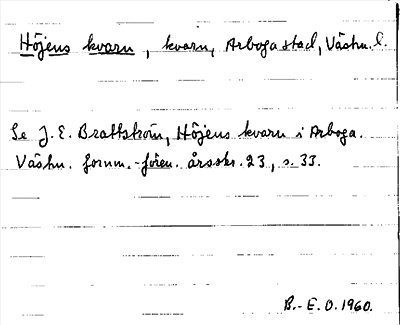 Höjens kvarn, kvarn, Arboga stad, Västm. l.
Se J. E. Brattström, Höjens kvarn i Arboga.
Västm. fornm.-fören. årsskr. 23, s. 33.
B.-E. O. 1960.